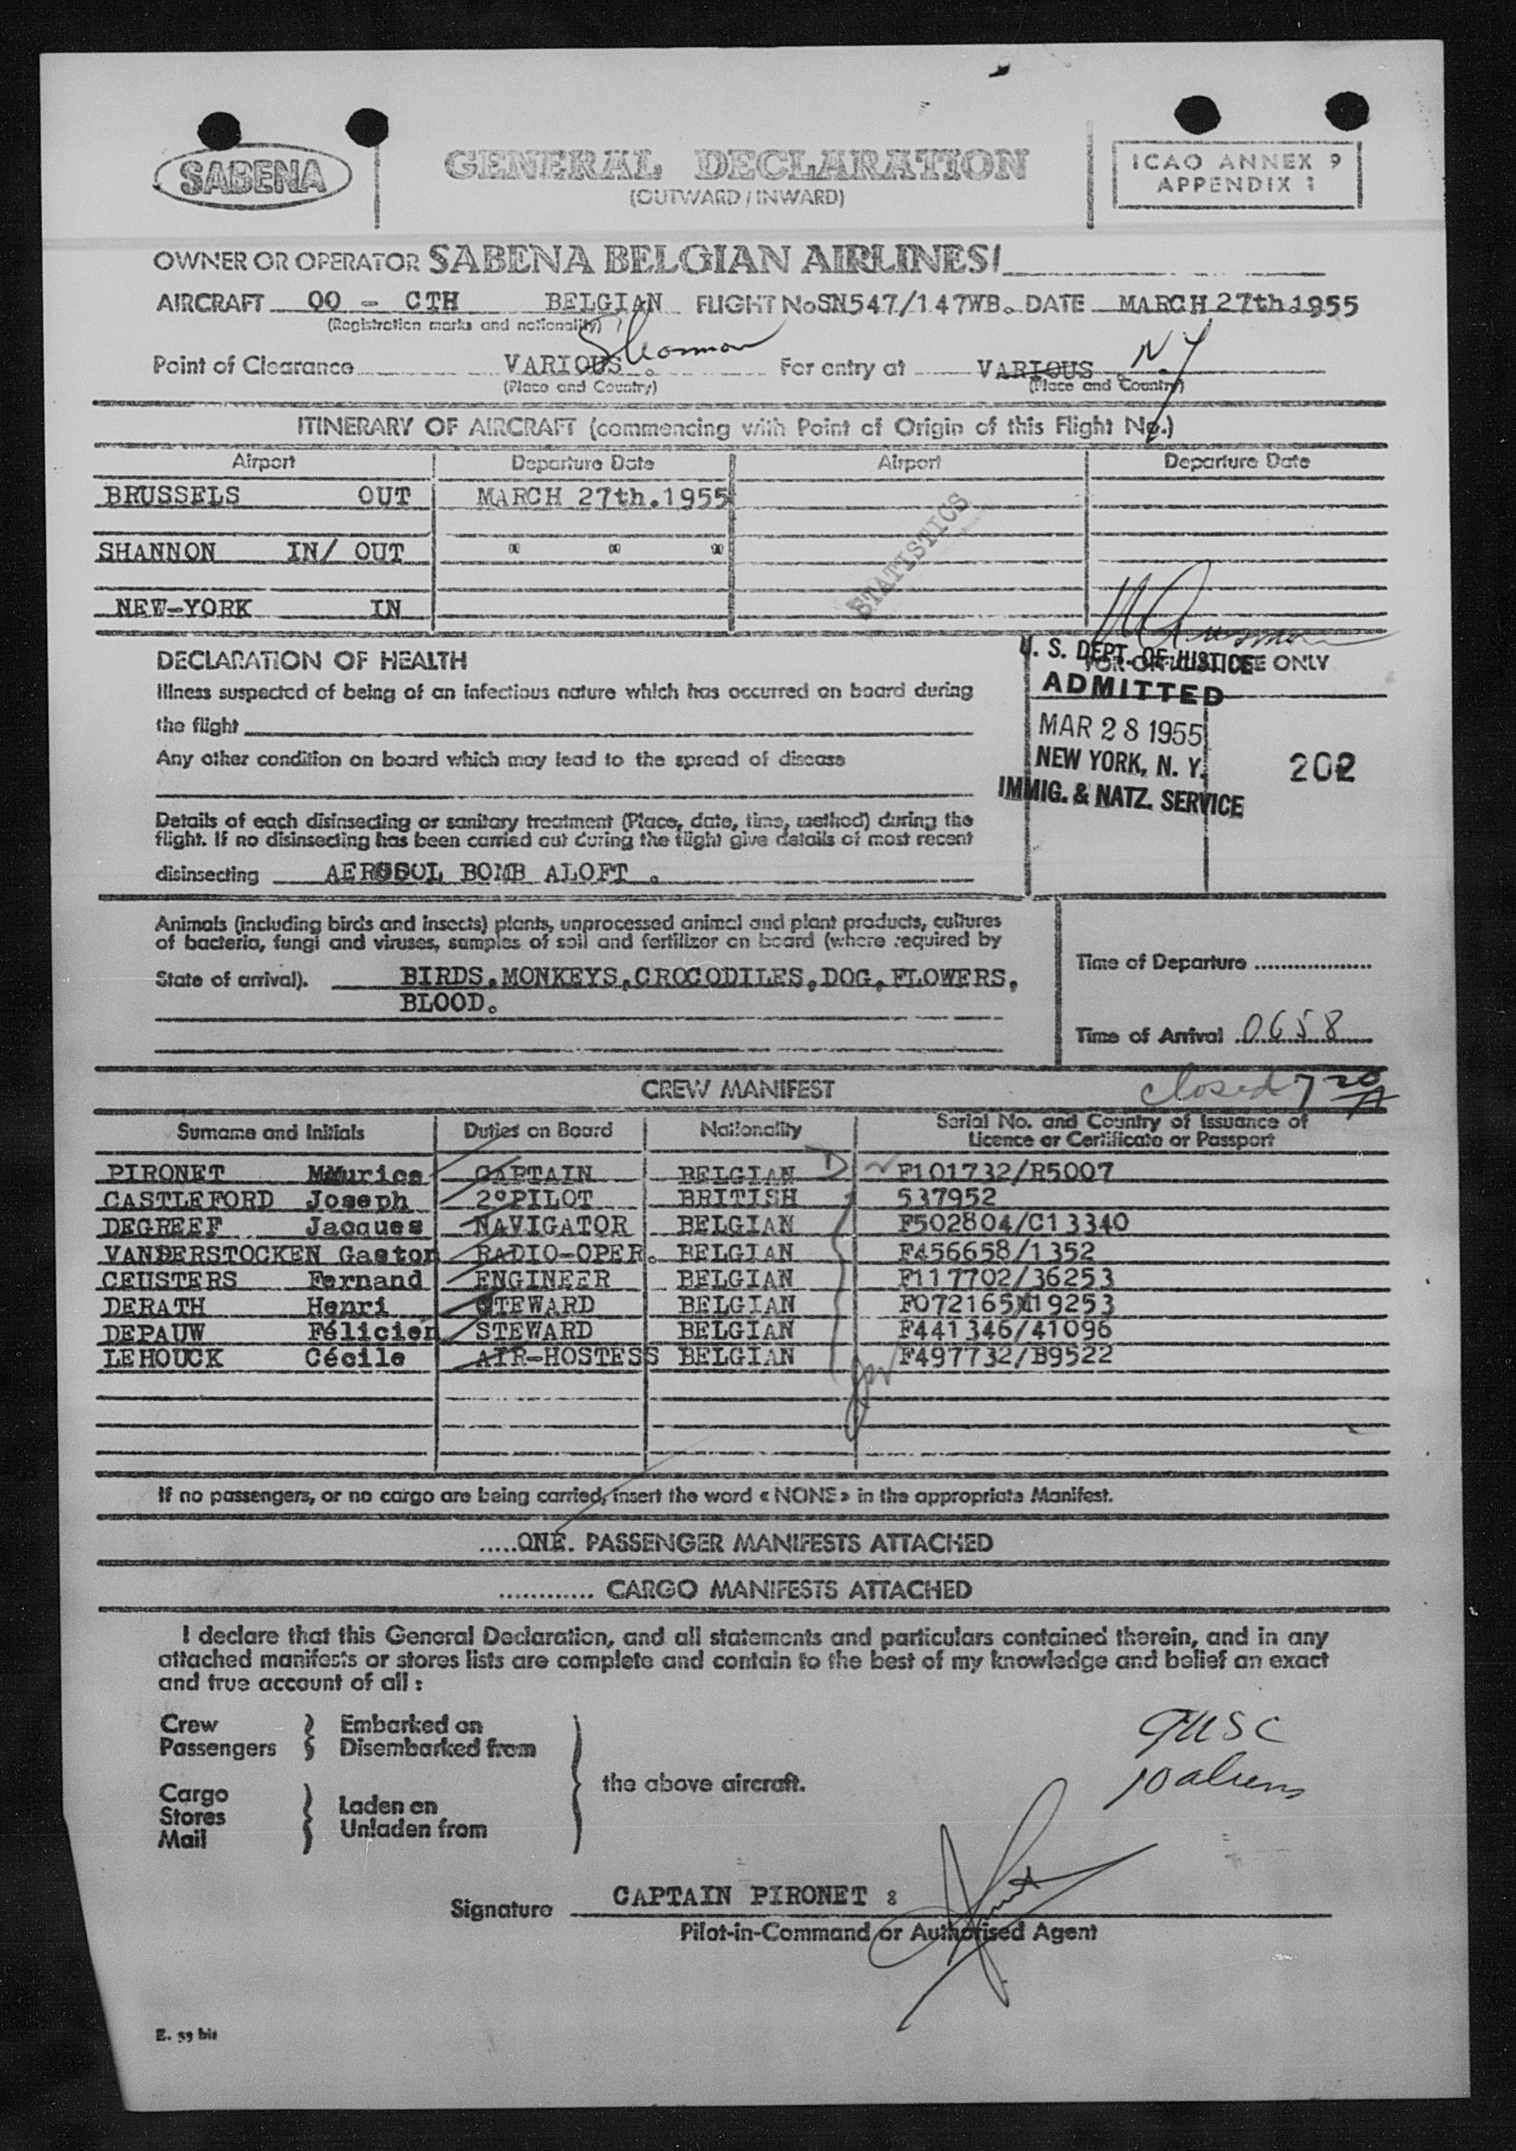 SABENA
GENERAL DECLARATION
(OUTWARD / INWARD)
ICAO ANNEX 9
APPENDIX 1
OWNER OR OPERATOR SABENA BELGIAN AIRLINES!
AIRCRAFT OO - CTH BELGIAN FLIGHT No SN547/147WB. DATE MARCH 27th.1955
(Registration marks and nationality)
Point of Clearance VARIOUS. Shannon For entry at VARIOUS. NY
(Place and Country) (Place and Country)
ITINERARY OF AIRCRAFT (commencing with Point of Origin of this Flight No.)
Airport Departure Date Airport Departure Date
BRUSSELS OUT MARCH 27th.1955
SHANNON IN/ OUT " " "
NEW-YORK IN
STATISTICS
DECLARATION OF HEALTH
FOR OFFICIAL USE ONLY
U. S. DEPT. OF JUSTICE
ADMITTED
MAR 28 1955
NEW YORK, N. Y.
IMMIG. & NATZ. SERVICE
202
Illness suspected of being of an infectious nature which has occurred on board during
the flight
Any other condition on board which may lead to the spread of disease
Details of each disinsecting or sanitary treatment (Place, date, time, method) during the
flight. If no disinsecting has been carried out during the flight give details of most recent
disinsecting AEROSOL BOMB ALOFT .
Animals (including birds and insects) plants, unprocessed animal and plant products, cultures
of bacteria, fungi and viruses, samples of soil and fertilizer on board (where required by
State of arrival). BIRDS,MONKEYS,CROCODILES,DOG,FLOWERS,
BLOOD.
Time of Departure ..................
Time of Arrival 0658
closed 7 20 A
CREW MANIFEST
Surname and Initials Duties on Board Nationality Serial No. and Country of Issuance of
Licence or Certificate or Passport
PIRONET MMurice CAPTAIN BELGIAN D F101732/R5007
CASTLEFORD Joseph 2°PILOT BRITISH 537952
DEGREEF Jacques NAVIGATOR BELGIAN F502804/C13340
VANDERSTOCKEN Gaston RADIO-OPER. BELGIAN F456658/1352
CEUSTERS Fernand ENGINEER BELGIAN F117702/36253
DERATH Henri STEWARD BELGIAN F072165/119253
DEPAUW Félicien STEWARD BELGIAN F441346/41096
LEHOUCK Cécile AIR-HOSTESS BELGIAN F497732/B9522
If no passengers, or no cargo are being carried, insert the word « NONE » in the appropriate Manifest.
.....ONE. PASSENGER MANIFESTS ATTACHED
............ CARGO MANIFESTS ATTACHED
I declare that this General Declaration, and all statements and particulars contained therein, and in any
attached manifests or stores lists are complete and contain to the best of my knowledge and belief an exact
and true account of all :
Crew Embarked on
Passengers Disembarked from
the above aircraft.
Cargo
Stores Laden on
Mail Unladen from
9 USC
10 aliens
Signature CAPTAIN PIRONET :
Pilot-in-Command or Authorised Agent
E. 53 bis